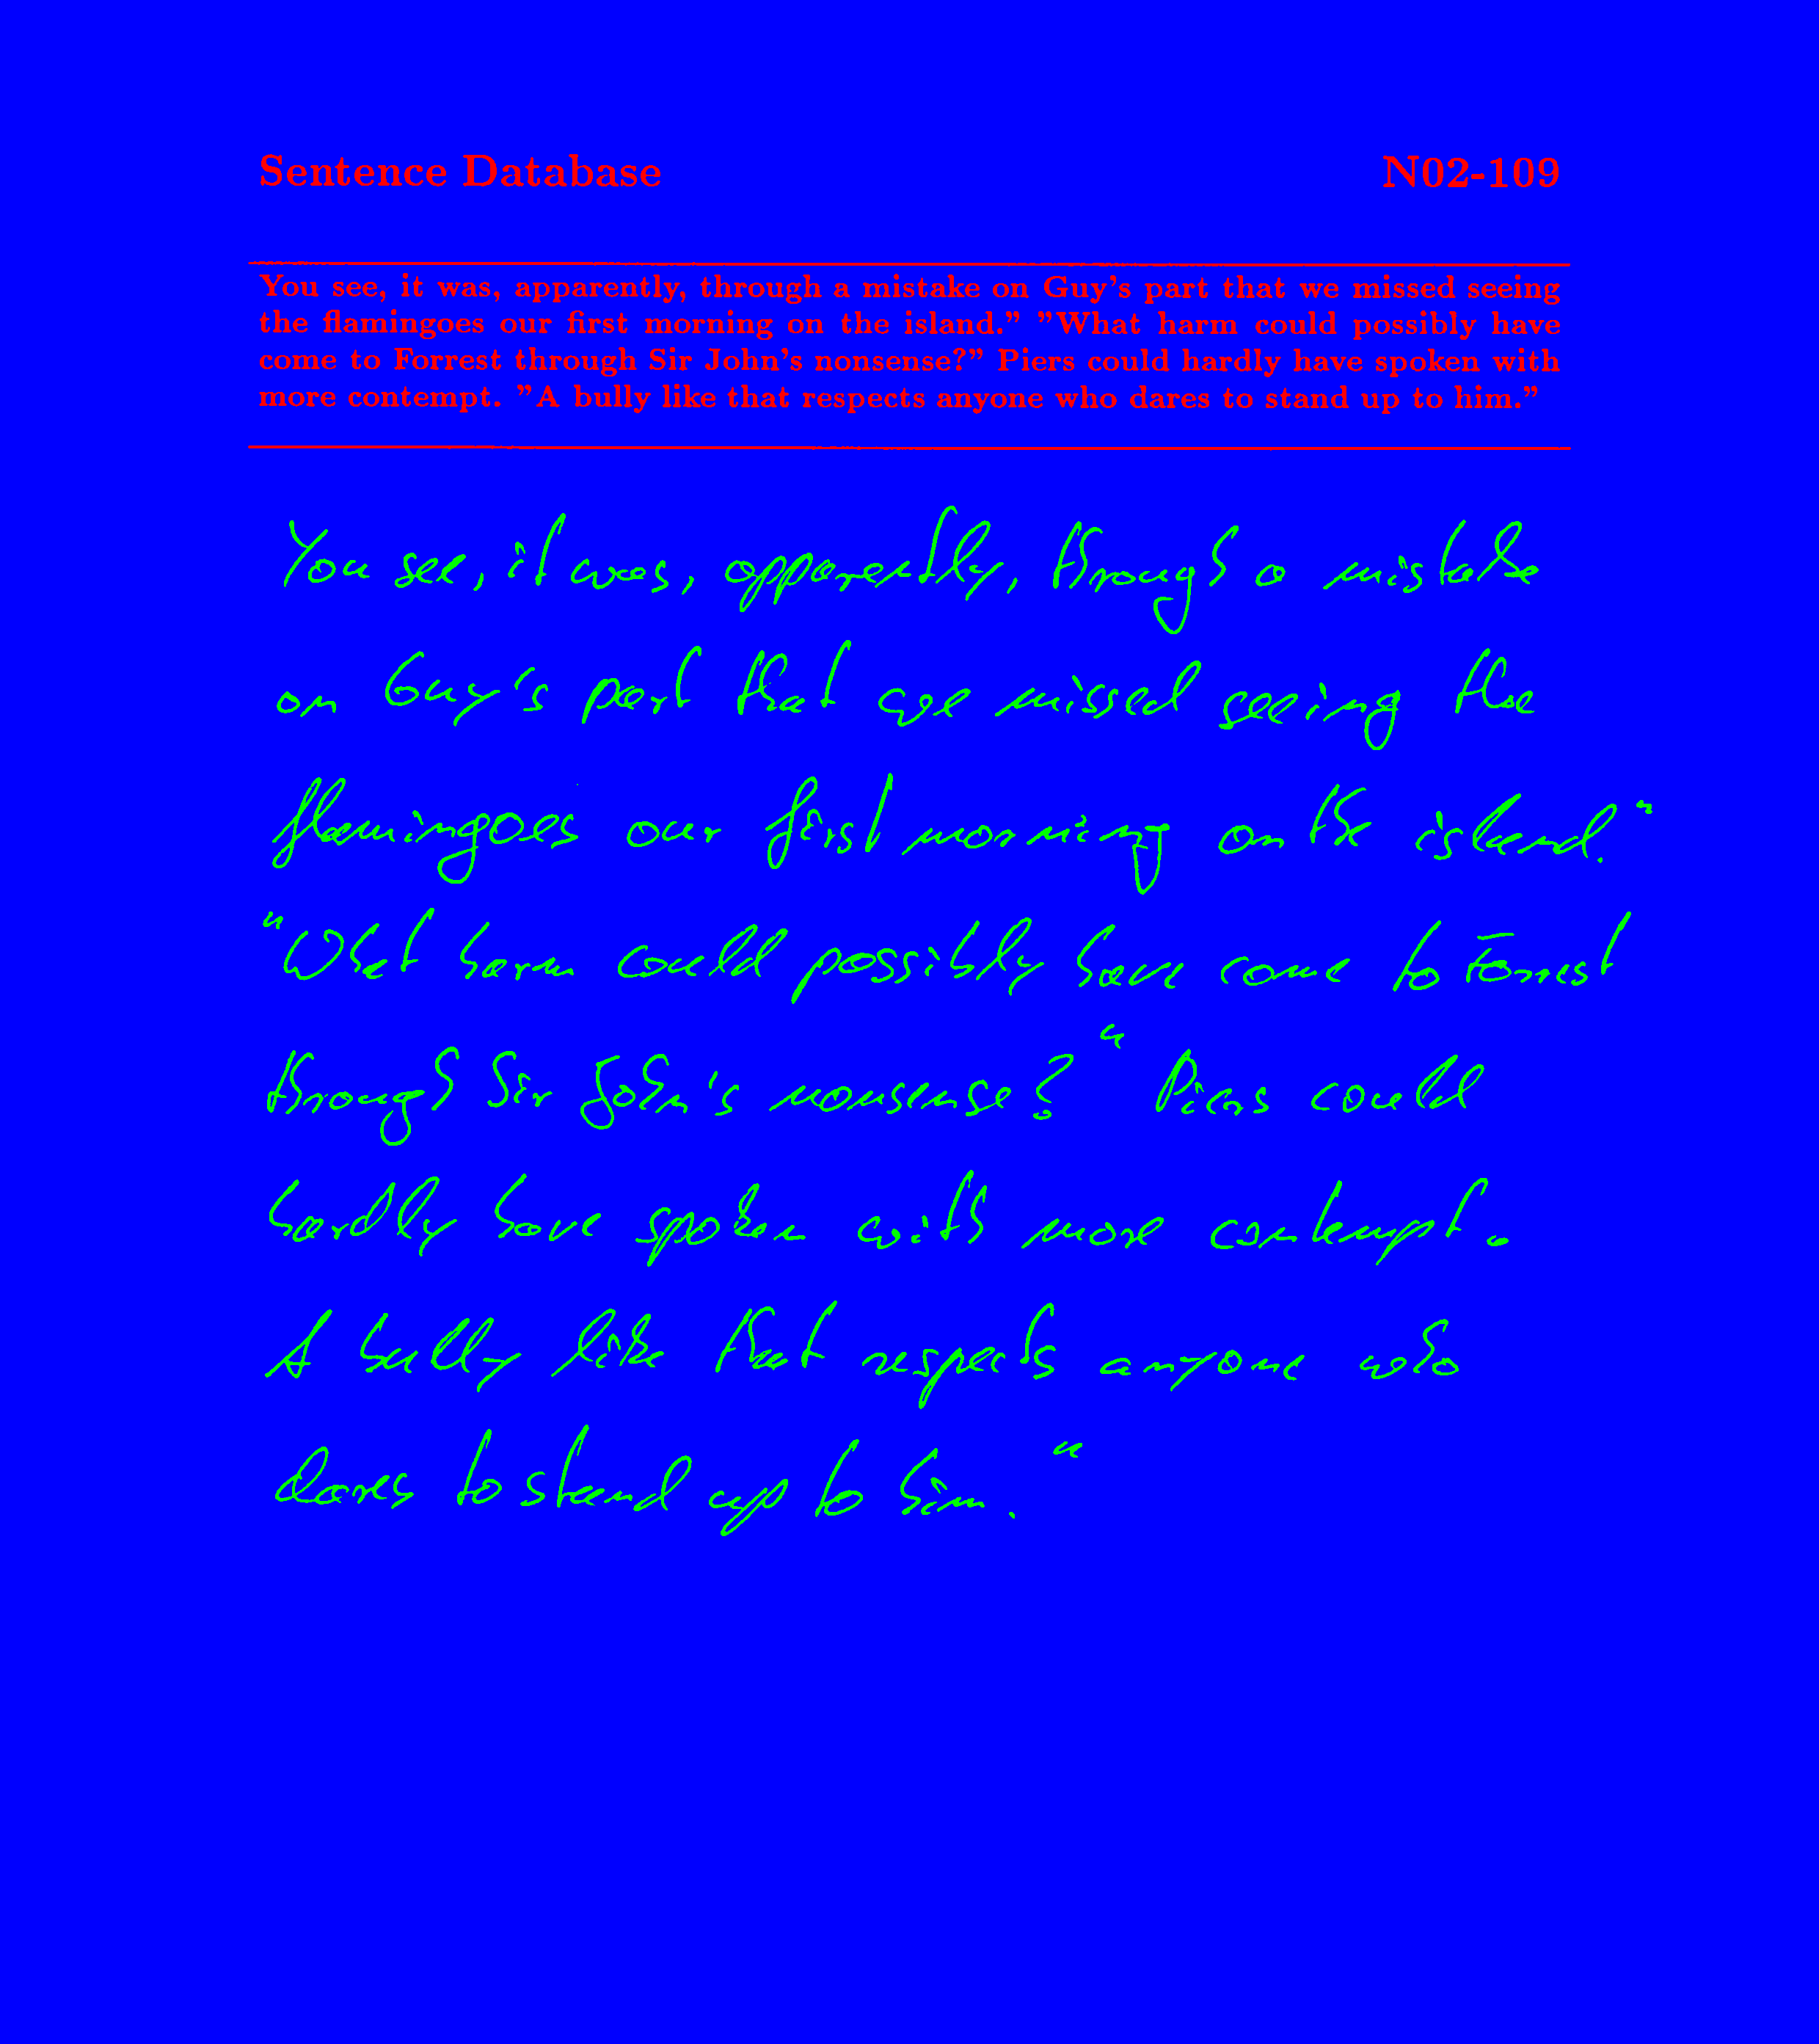 Sentence Database N02-109
You see, it was, apparently, through a mistake on Guy's part that we missed seeing
the flamingoes our first morning on the island." "What harm could possibly have
come to Forrest through Sir John's nonsense?" Piers could hardly have spoken with
more contempt. "A bully like that respects anyone who dares to stand up to him."
You see, it was, apparently, through a mistake
on Guy's part that we missed seeing the
flamingoes our first morning on the island."
"What harm could possibly have come to Forrest
through Sir John's nonsense?" Piers could
hardly have spoken with more contempt.
A bully like that respects anyone who
dares to stand up to him."